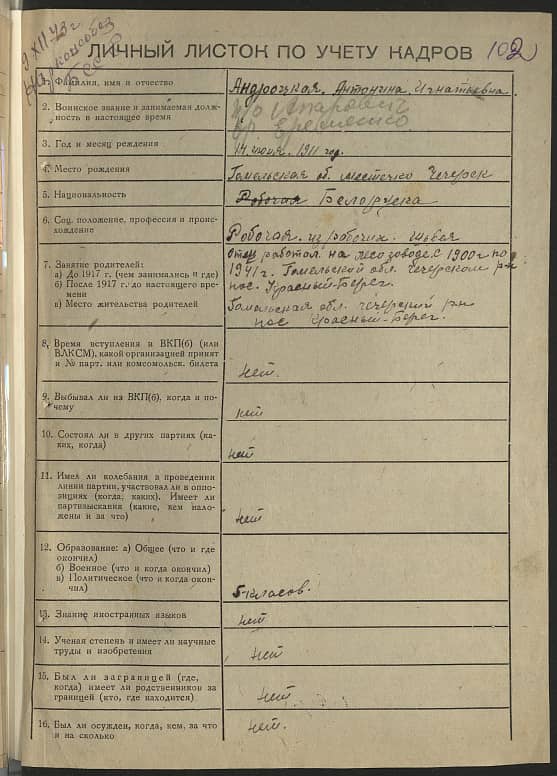 9 XII 43 г
БССР
ЛИЧНЫЙ ЛИСТОК ПО УЧЕТУ КАДРОВ 102
Фамилия, имя и отчество Андроцкая, Антонина Игнатьевна.
2. Воинское звание и занимаемая долж-
ность в настоящее время
3. Год и месяц рождения 14 июня. 1911 год.
4. Место рождения Гомельская об. местечко Чечерск
5. Национальность Рабочая Белоруска
6. Соц. положение, профессия и проис-
хождение Рабочая. из рабочих. Швея
7. Занятие родителей: отец работал на лесозаводе. с 1900 г по
а) До 1917 г. (чем занимались и где) 1941 г. Гомельской обл. Чечерском р-н
б) После 1917 г. до настоящего вре-
мени пос. Красный-Берег.
в) Место жительства родителей Гомельская обл. Чечерский р-н
пос Красный-Берег.
8. Время вступления в ВКП(б) (или
ВЛКСМ), какой организацией принят
и № парт. или комсомольск. билета нет.
9. Выбывал ли из ВКП(б), когда и по-
чему нет
10. Состоял ли в других партиях (ка-
ких, когда) нет
11. Имел ли колебания в проведении
линии партии, участвовал ли в оппо-
зициях (когда, каких). Имеет ли
партвзыскания (какие, кем нало-
жены и за что) нет
12. Образование: а) Общее (что и где
окончил)
б) Военное (что и когда окончил)
в) Политическое (что и когда окон-
чил) 5 класов.
13. Знание иностранных языков нет
14. Ученая степень и имеет ли научные
труды и изобретения нет
15. Был ли заграницей (где,
когда) имеет ли родственников за
границей (кто, где находится) нет
16. Был ли осужден, когда, кем, за что
и на сколько нет.